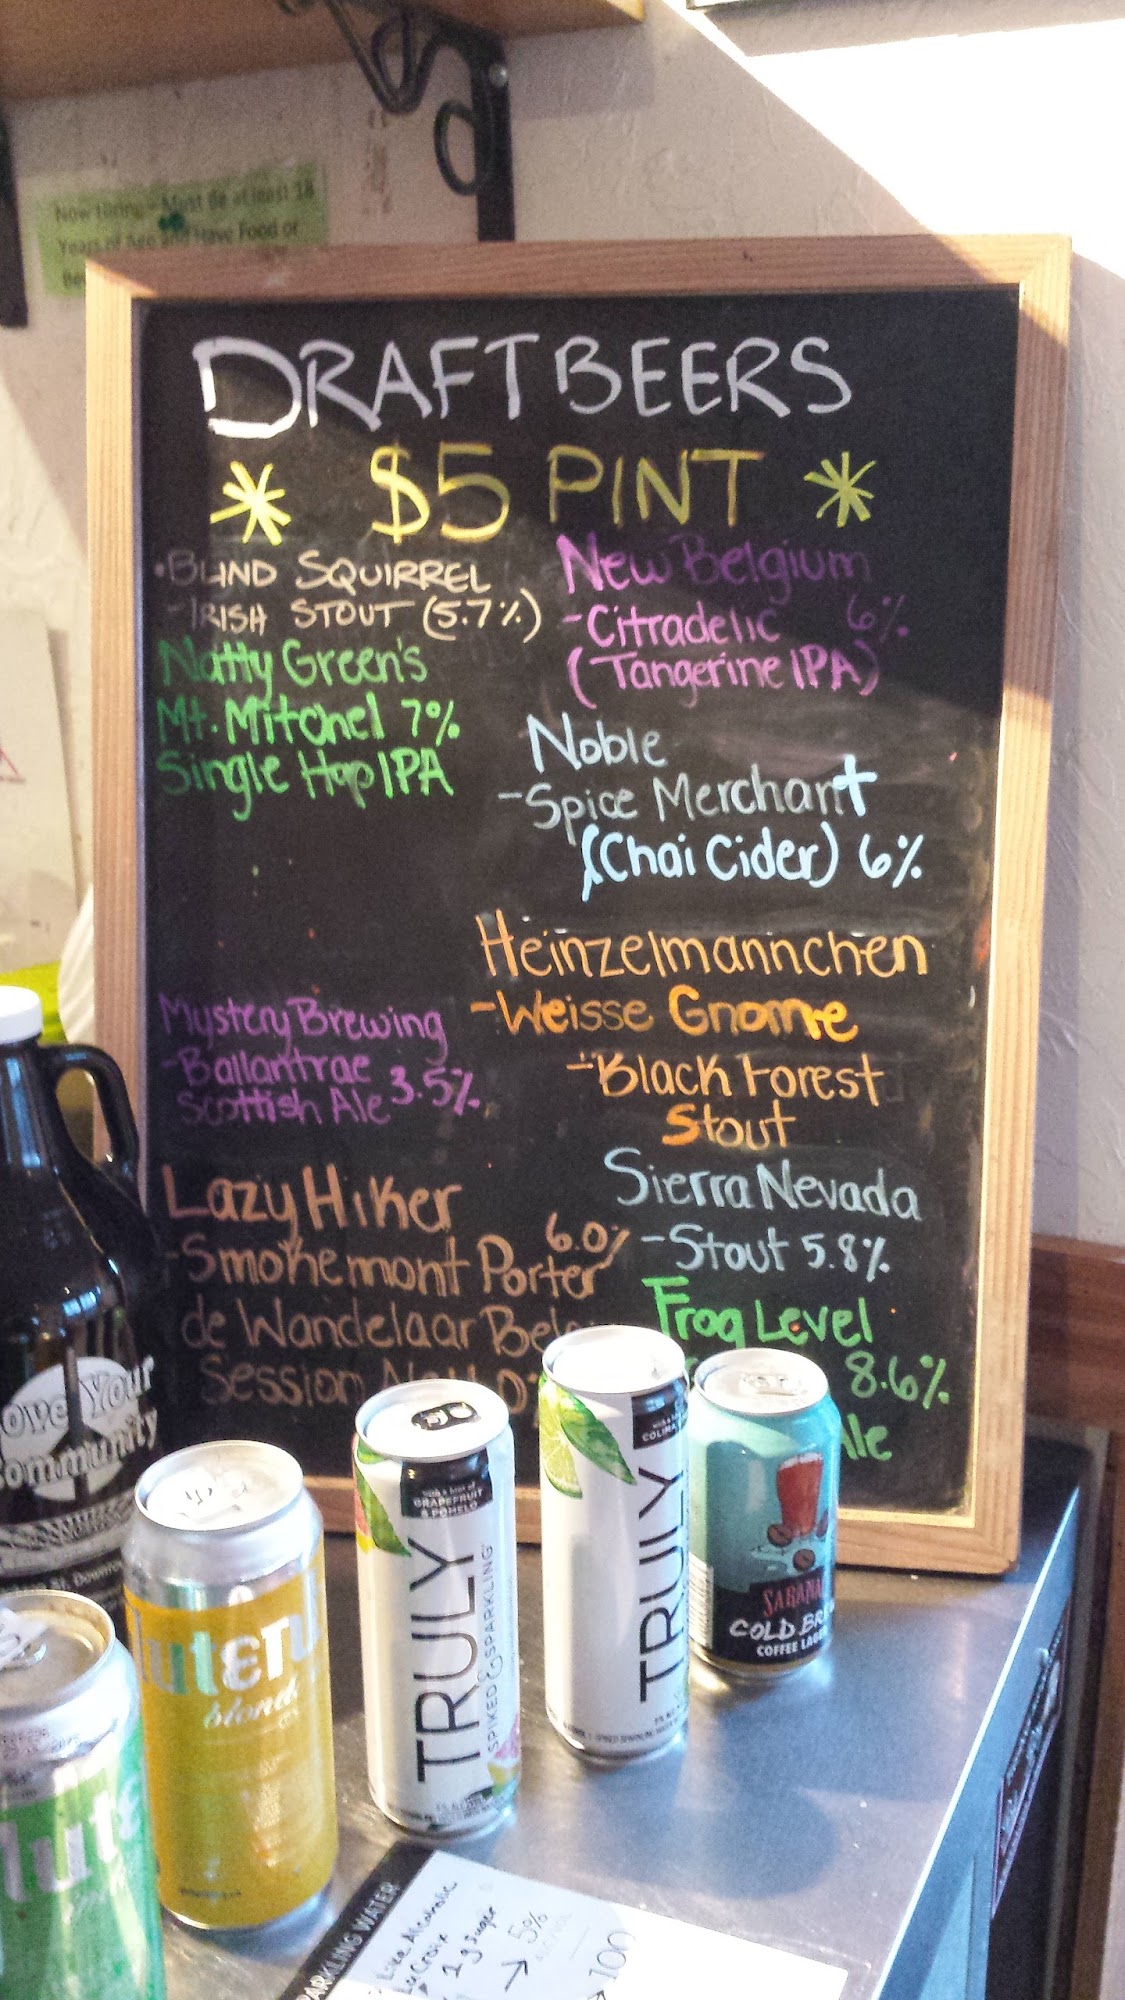 Now Hiring - Must Be at least 18
Years of Age and Have Food or
DRAFT BEERS
* $5 PINT *
·BLIND SQUIRREL
-IRISH STOUT (5.7%)
Natty Green's
Mt. Mitchel 7%
Single Hop IPA
Mystery Brewing
-Ballantrae
Scottish Ale 3.5%
Lazy Hiker
-Smokemont Porter 6.0%
de Wandelaar
Session
New Belgium
-Citradelic 6%
(Tangerine IPA)
Noble
-Spice Merchant
(Chai Cider) 6%
Heinzelmannchen
-Weisse Gnome
-Black Forest
Stout
Sierra Nevada
-Stout 5.8%
Frog Level
8.6%
Ale
Love Your
Community
blonde
with a hint of
GRAPEFRUIT
& POMELO
TRULY
SPIKED & SPARKLING
with a hint of
TRULY
COLD BREW
COFFEE LAGER
SPARKLING WATER
Like Alcoholic
La Croix
1 g sugar
→ 5%
→ 100